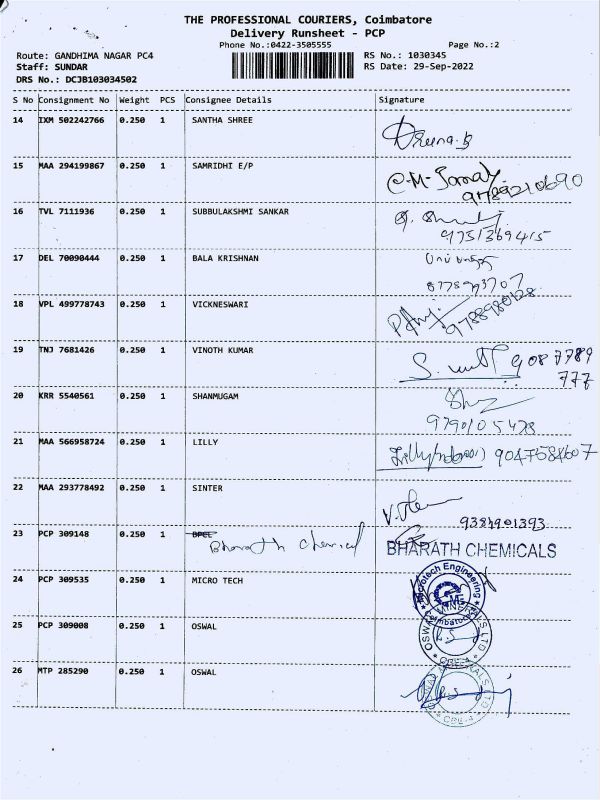 THE PROFESSIONAL COURIERS, Coimbatore
Delivery Runsheet - PCP
Phone No.:0422-3505555 Page No.:2
Route: GANDHIMA NAGAR PC4 RS No.: 1030345
Staff: SUNDAR RS Date: 29-Sep-2022
DRS No.: DCJB103034502
S No Consignment No Weight PCS Consignee Details Signature
14 IXM 502242766 0.250 1 SANTHA SHREE
15 MAA 294199867 0.250 1 SAMRIDHI E/P
9789210690
16 TVL 7111936 0.250 1 SUBBULAKSHMI SANKAR
9751369415
17 DEL 70090444 0.250 1 BALA KRISHNAN
18 VPL 499778743 0.250 1 VICKNESWARI
19 TNJ 7681426 0.250 1 VINOTH KUMAR
9087789
777
20 KRR 5540561 0.250 1 SHANMUGAM
21 MAA 566958724 0.250 1 LILLY
22 MAA 293778492 0.250 1 SINTER
9384901393
23 PCP 309148 0.250 1 BPCL Bharath chemical BHARATH CHEMICALS
24 PCP 309535 0.250 1 MICRO TECH Microtech Engineering Coimbatore
25 PCP 309008 0.250 1 OSWAL
26 MTP 285290 0.250 1 OSWAL
CBE-4